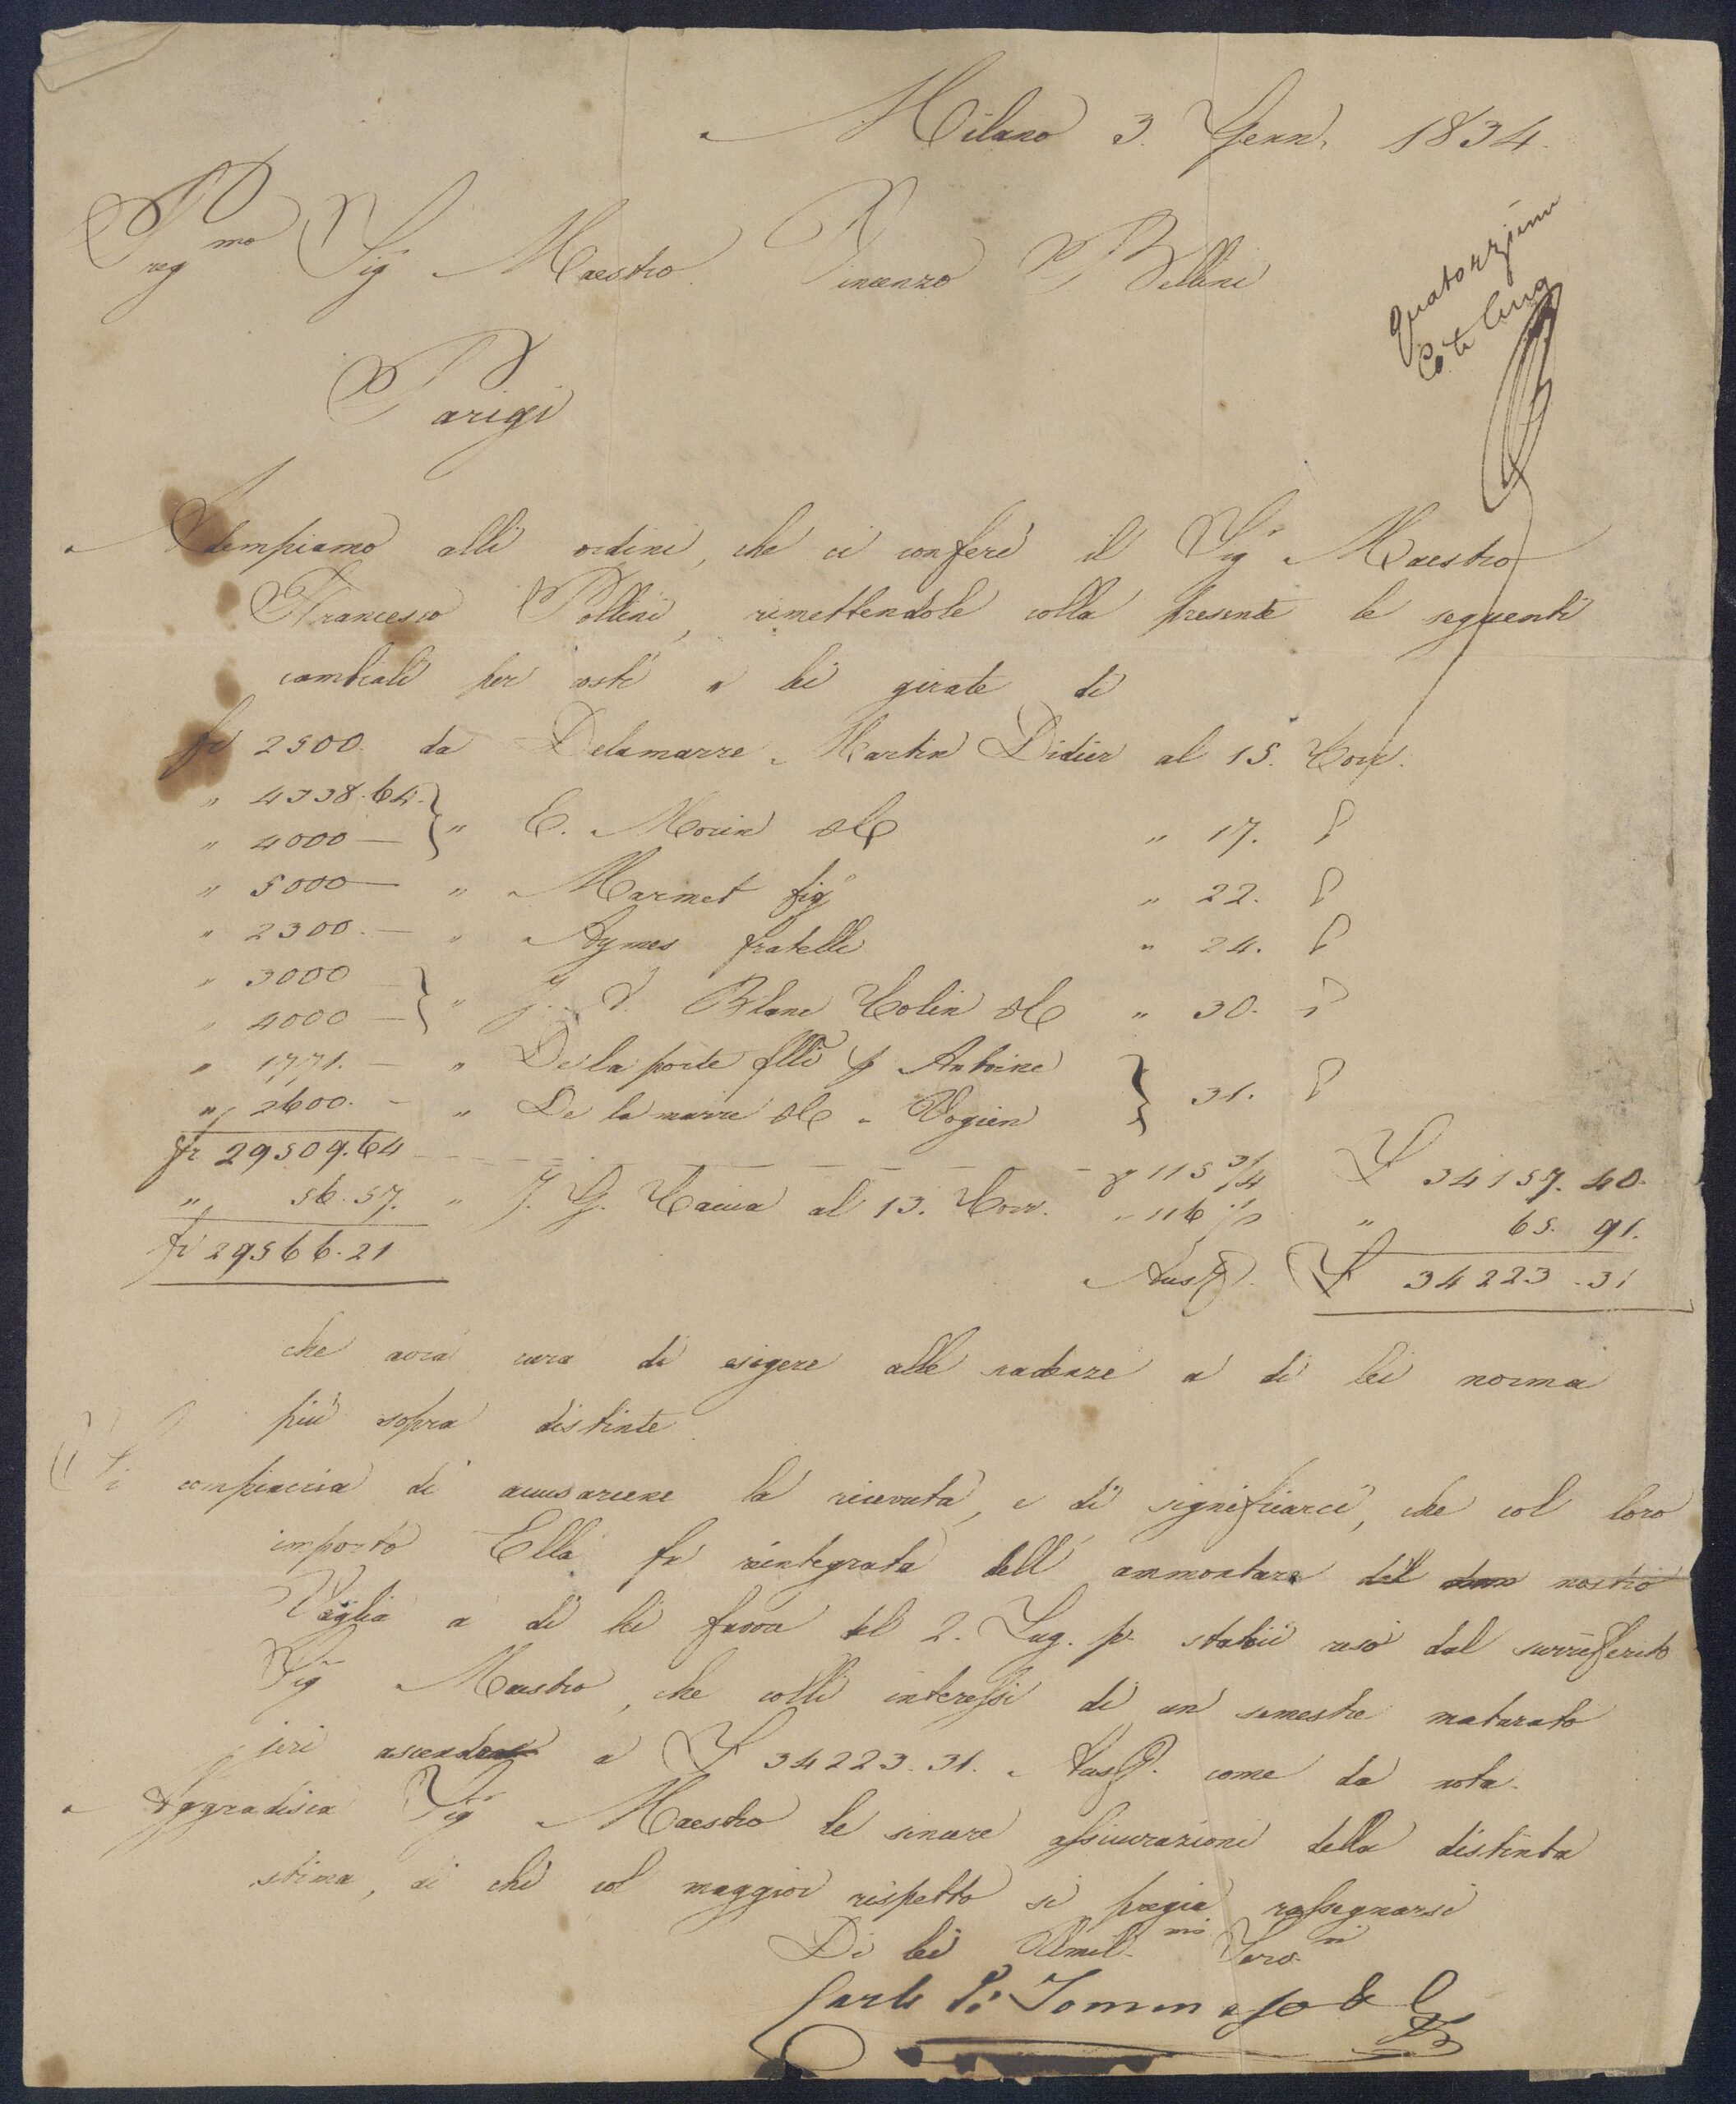 Milano 3. Genn. 1834.
Preg.mo Sig Maestro Vincenzo Bellini
Parigi
Adempiamo alli ordini, che ci conferì il Sig.r Maestro
Francesco Pollini, rimettendole colla presente le seguenti
cambiali per costì a lei girate di
fr 2500. da Delamarre Martin Didier al 15. Corr.
" 4338.64.
" 4000 — } " E. Morin & C " 17. "
" 5000 — " Marmet fig.o " 22. "
" 2300. — " Aymes fratelli " 24. "
" 3000
" 4000 — } " Blanc Colin & C " 30. "
" 1771. — " De la porte flli Antoine
" 2600. — " De la marre & C } 31. "
fr 29509.64 — — — 115 3/4 £ 34157.40.
" 56.57. " J. G. al 13. Corr. " 116 1/2 " 65.91.
fr 29566.21 Aus. £ 34223.31
che avrà cura di esigere alle scadenze a di lei norma
più sopra distinte.
Si compiaccia di accusarcene la ricevuta, e di significarci, che col loro
importo Ella fu reintegrata dell' ammontare del nostro
Vaglia a di lei favore del 2. Lug. p. reso dal surriferito
Sig.r Maestro, che colli interessi di un semestre maturato
jeri a £ 34223.31. Aus. come da nota.
Aggradisca Sig.r Maestro le sincere assicurazioni della distinta
stima, di chi col maggior rispetto si pregia rassegnarsi
Di lei Umil.mi Serv.ri